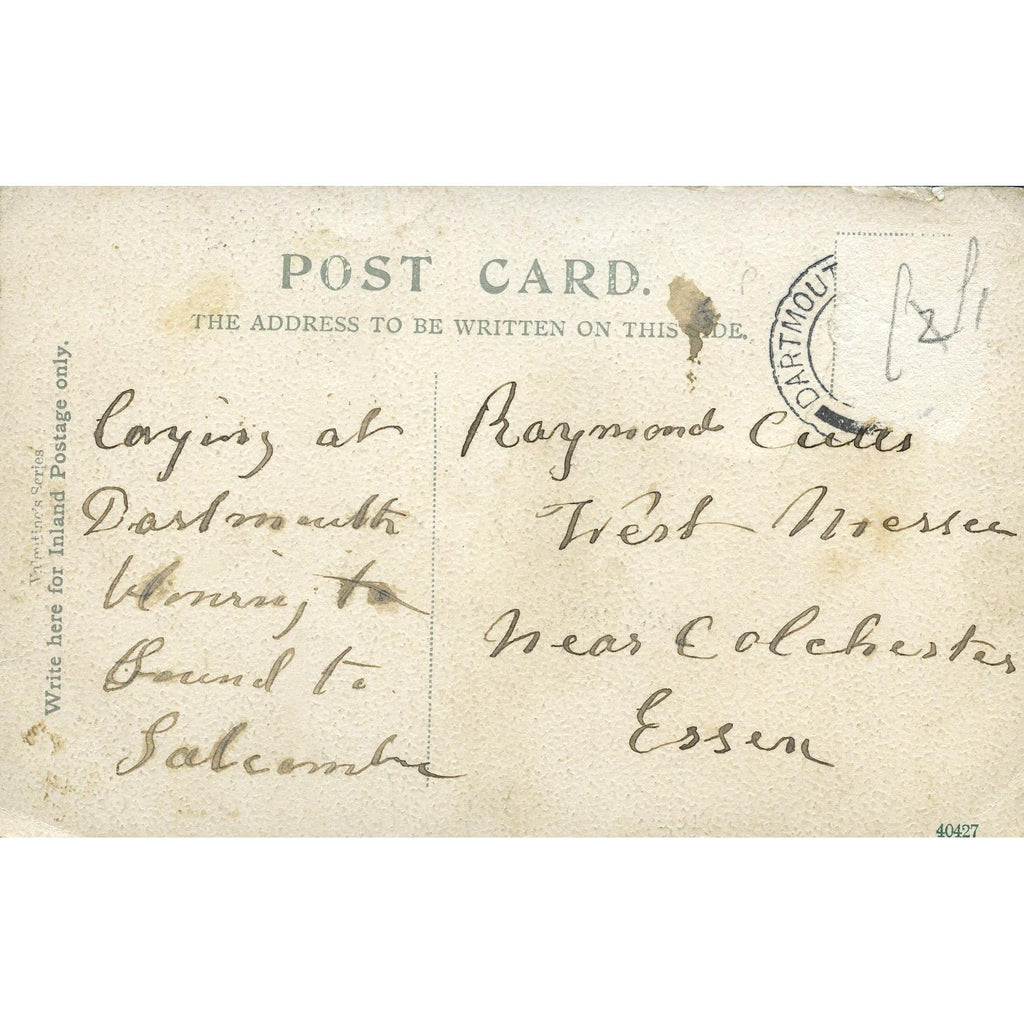 POST CARD.
THE ADDRESS TO BE WRITTEN ON THIS SIDE.
Write here for Inland Postage only.
Valentine's Series
DARTMOUT
Laying at
Dartmouth
to
Bound to
Salcombe
Raymond
West Mersea
Near Colchester
Essex
40427